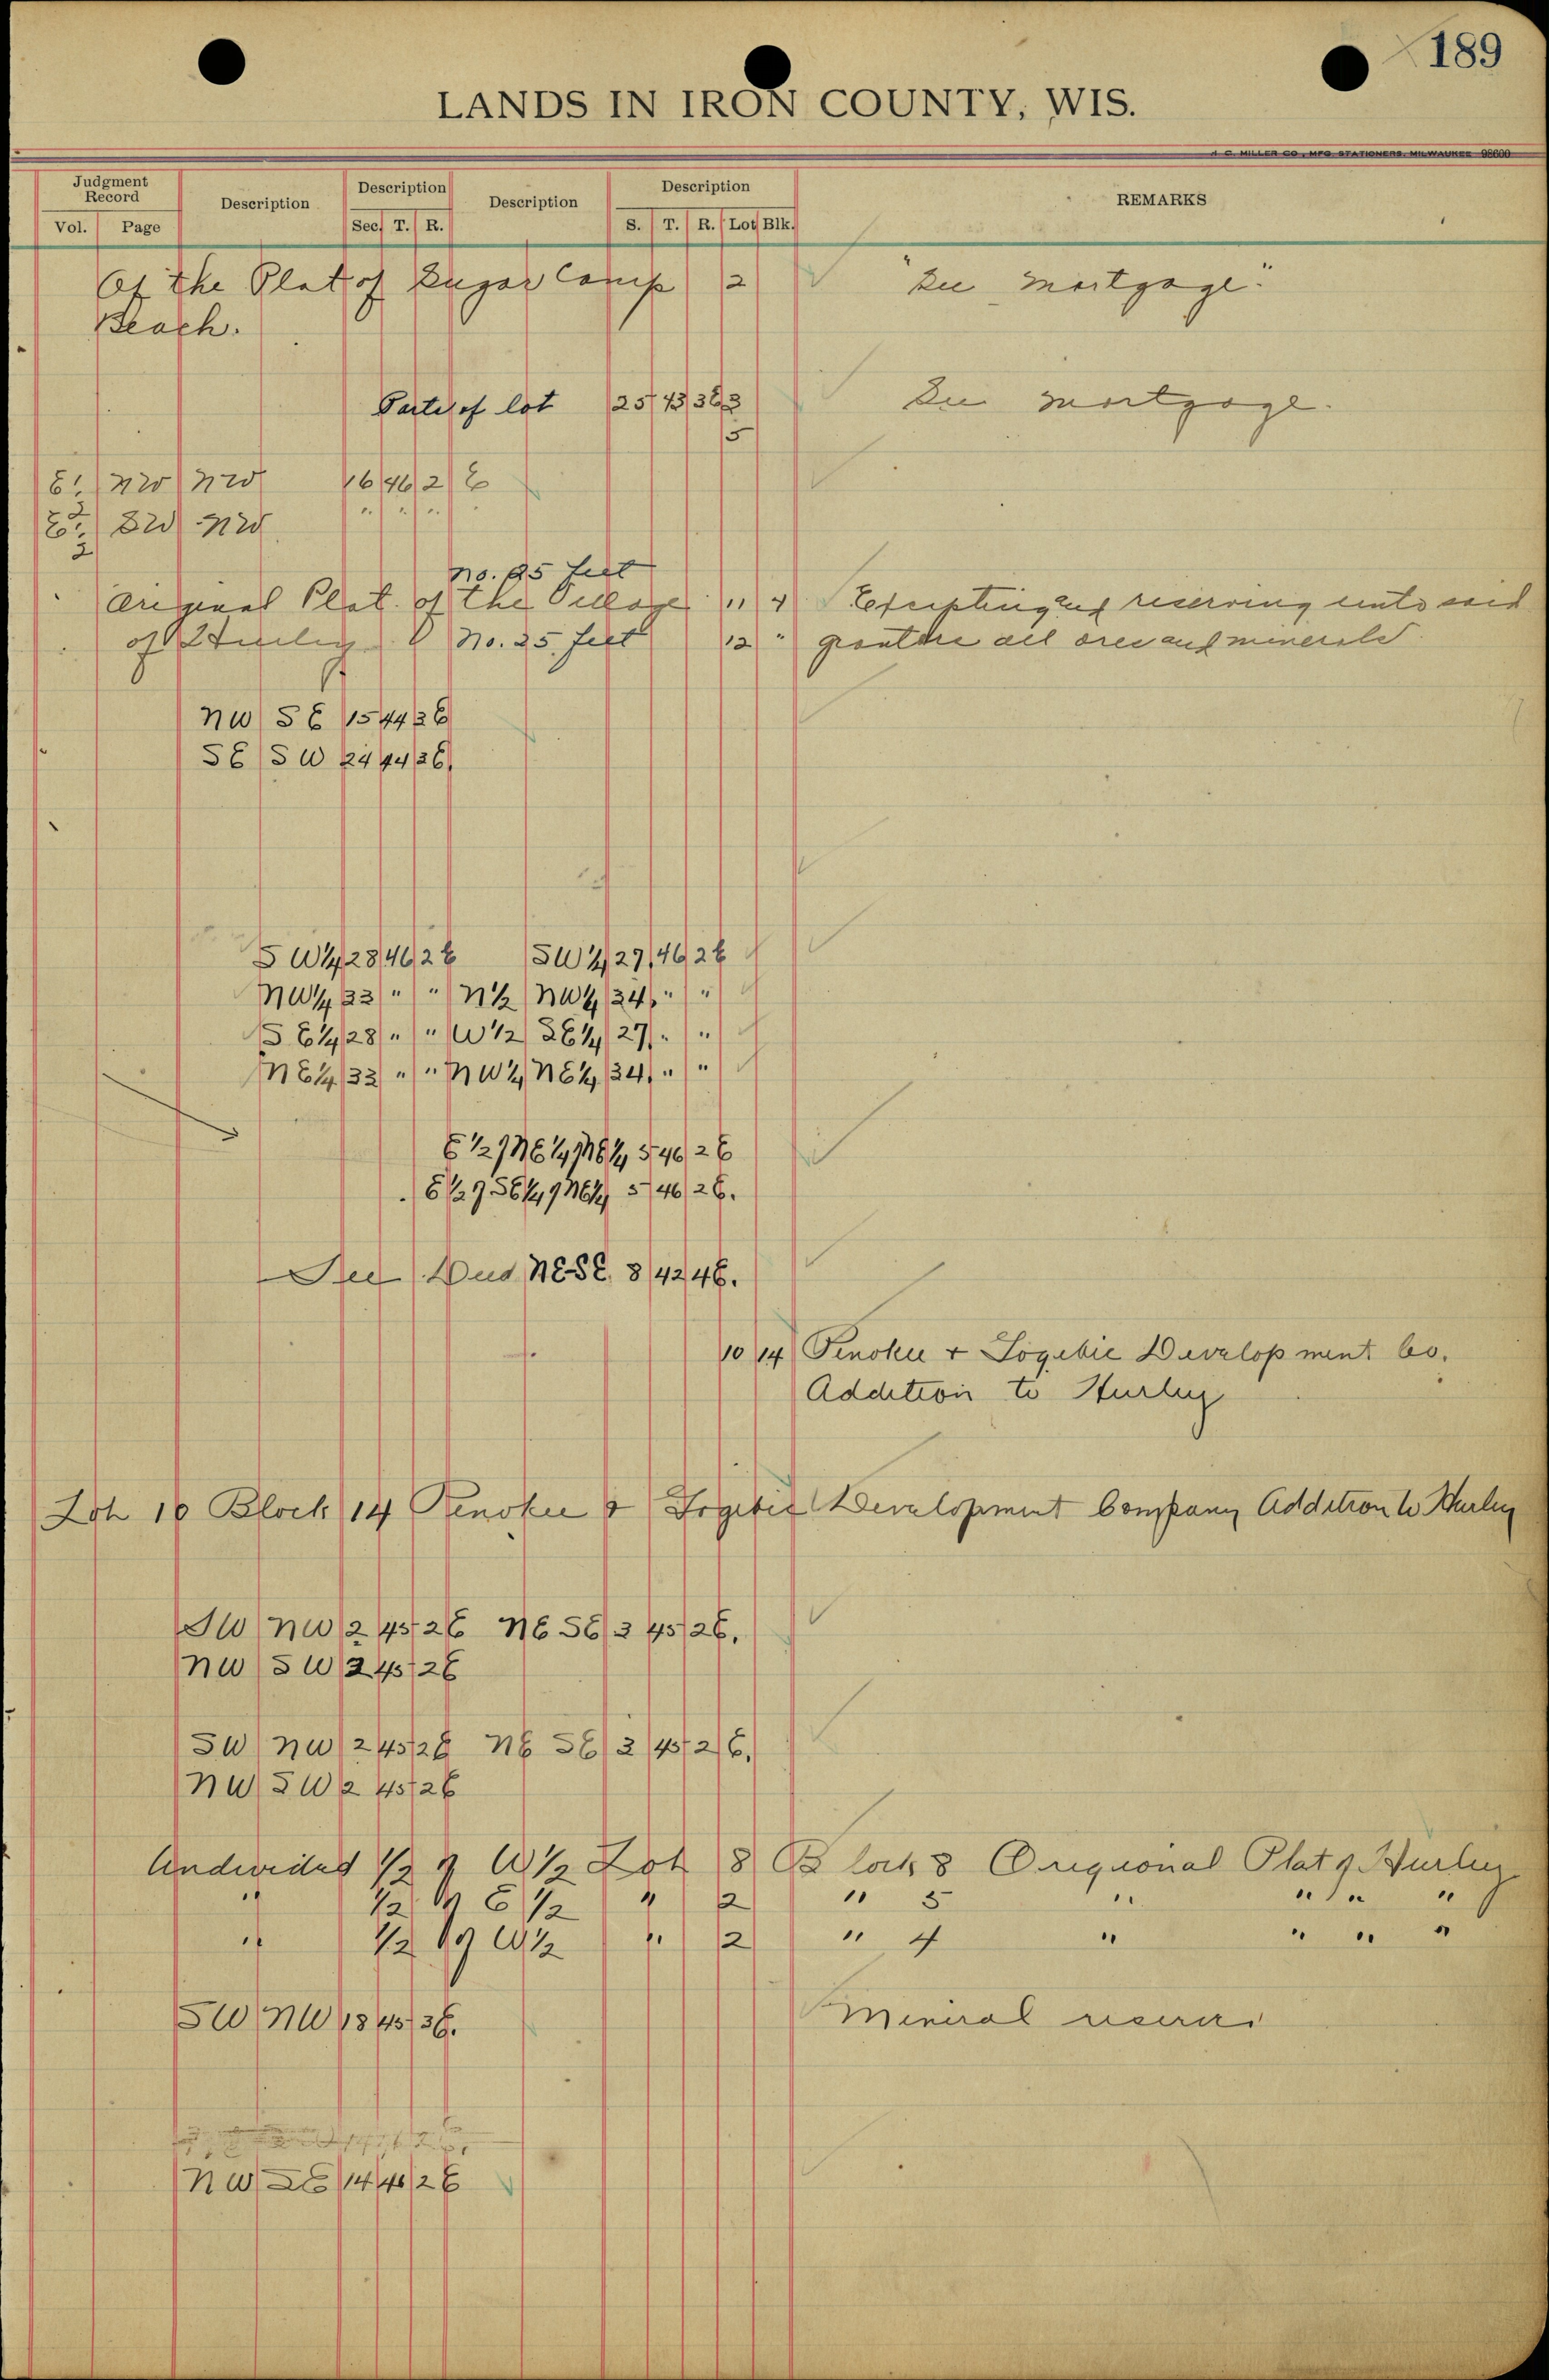 189
LANDS IN IRON COUNTY, WIS.
H. C. MILLER CO., MFG STATIONERS, MILWAUKEE 98600
Judgment Record Description Description Description Description REMARKS
Vol. Page Sec. T. R. S. T. R. Lot Blk.
Of the Plat of Sugar Camp 2 "See Mortgage."
Beach.
Parts of lot 25 43 3E 3 See Mortgage.
5
E 1/2 NW NW 16 46 2 E
E 1/2 SW NW " " " "
No. 25 feet
Original Plat of the Village 11 4 Excepting and reserving unto said
of Hurley No. 25 feet 12 " grantors all ores and minerals
NW SE 15 44 3E
SE SW 24 44 3E
SW 1/4 28 46 2E SW 1/4 27 46 2E
NW 1/4 33 " " N 1/2 NW 1/4 34 " "
SE 1/4 28 " " W 1/2 SE 1/4 27 " "
NE 1/4 33 " " NW 1/4 NE 1/4 34 " "
E 1/2 of NE 1/4 of NE 1/4 5 46 2E
E 1/2 of SE 1/4 of NE 1/4 5 46 2E.
See NE SE. 8 42 4E.
10 14 Penokee & Gogebic Development Co.
Addition to Hurley
Lot 10 Block 14 Penokee & Gogebic Development Company Addition to Hurley
SW NW 2 45 2E NE SE 3 45 2E.
NW SW 2 45 2E
SW NW 2 45 2E NE SE 3 45 2E.
NW SW 2 45 2E
Undivided 1/2 of W 1/2 Lot 8 Block 8 Origional Plat of Hurley
" 1/2 of E 1/2 " 2 " 5 " " " "
" 1/2 of W 1/2 " 2 " 4 " " " "
SW NW 18 45 3E. Mineral
NW SE 14 46 2E